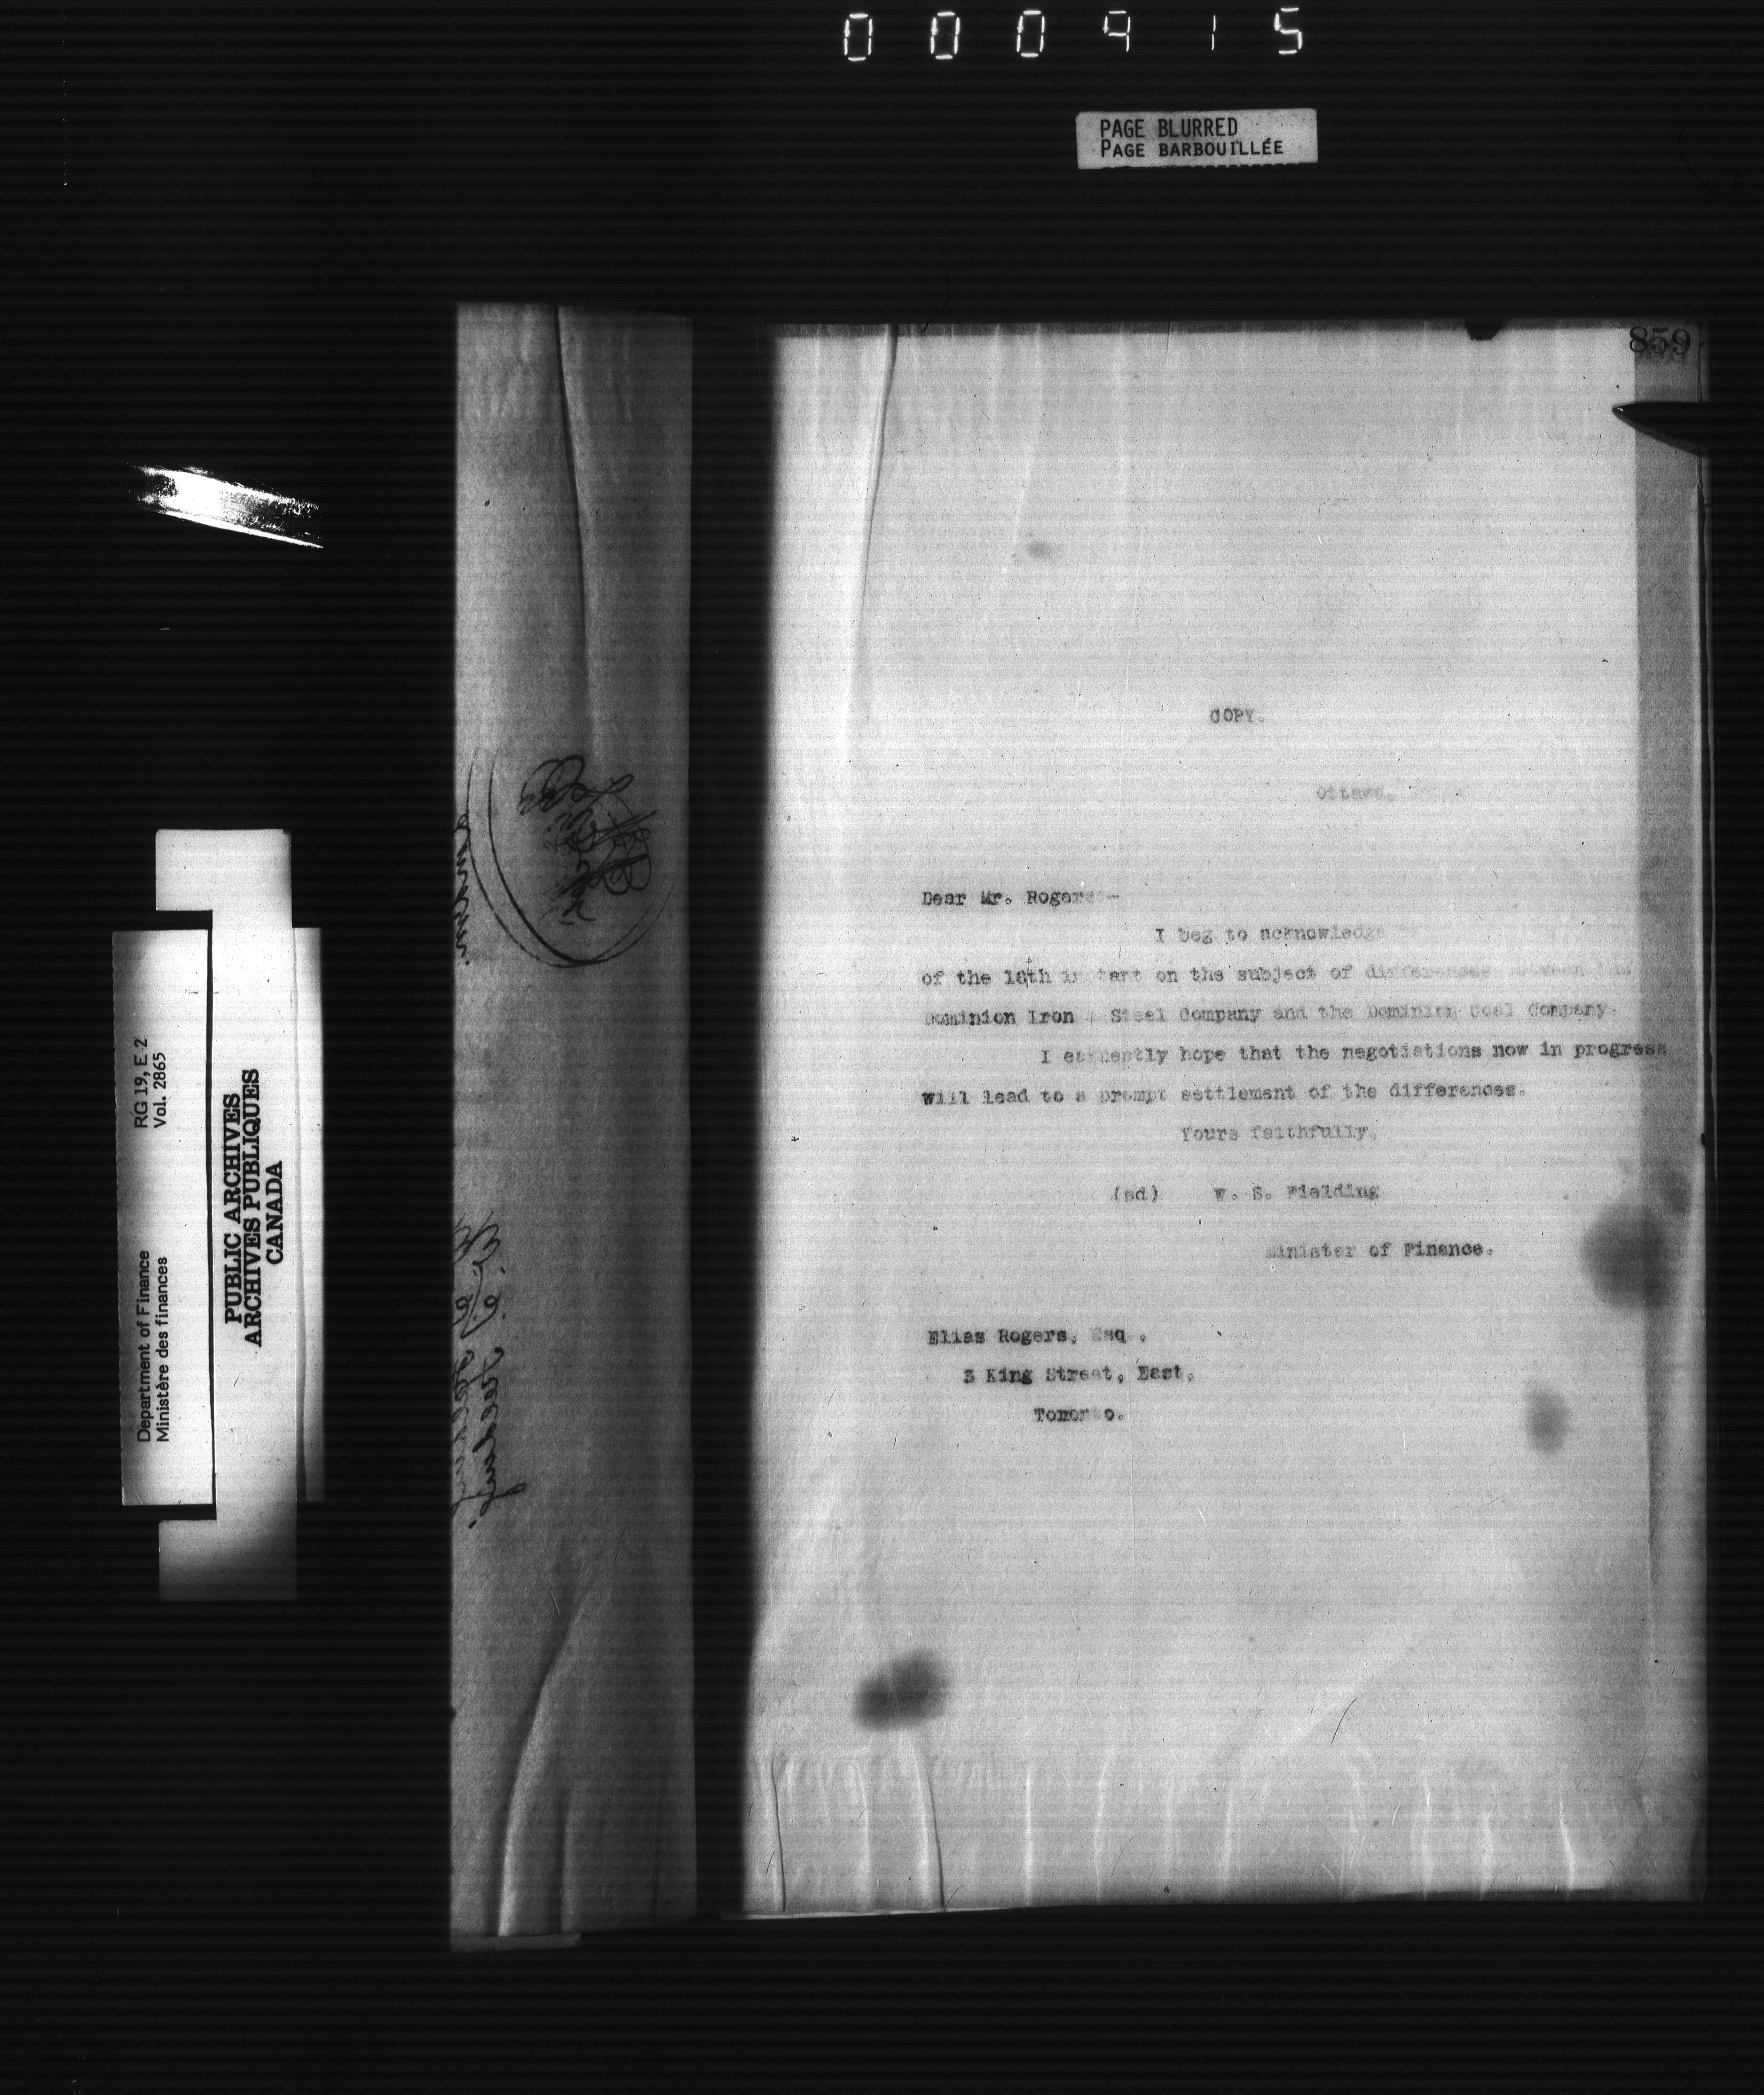 000915
PAGE BLURRED
PAGE BARBOUILLÉE
859
COPY.
Ottawa,
Dear Mr. Rogers:-
I beg to acknowledge
of the 18th instant on the subject of differences between the
Dominion Iron & Steel Company and the Dominion Coal Company.
I earnestly hope that the negotiations now in progress
will lead to a prompt settlement of the differences.
Yours faithfully,
(sd) W. S. Fielding
Minister of Finance.
Elias Rogers, Esq.,
3 King Street, East,
Toronto.
Department of Finance RG 19, E-2
Ministère des finances Vol. 2865
PUBLIC ARCHIVES
ARCHIVES PUBLIQUES
CANADA